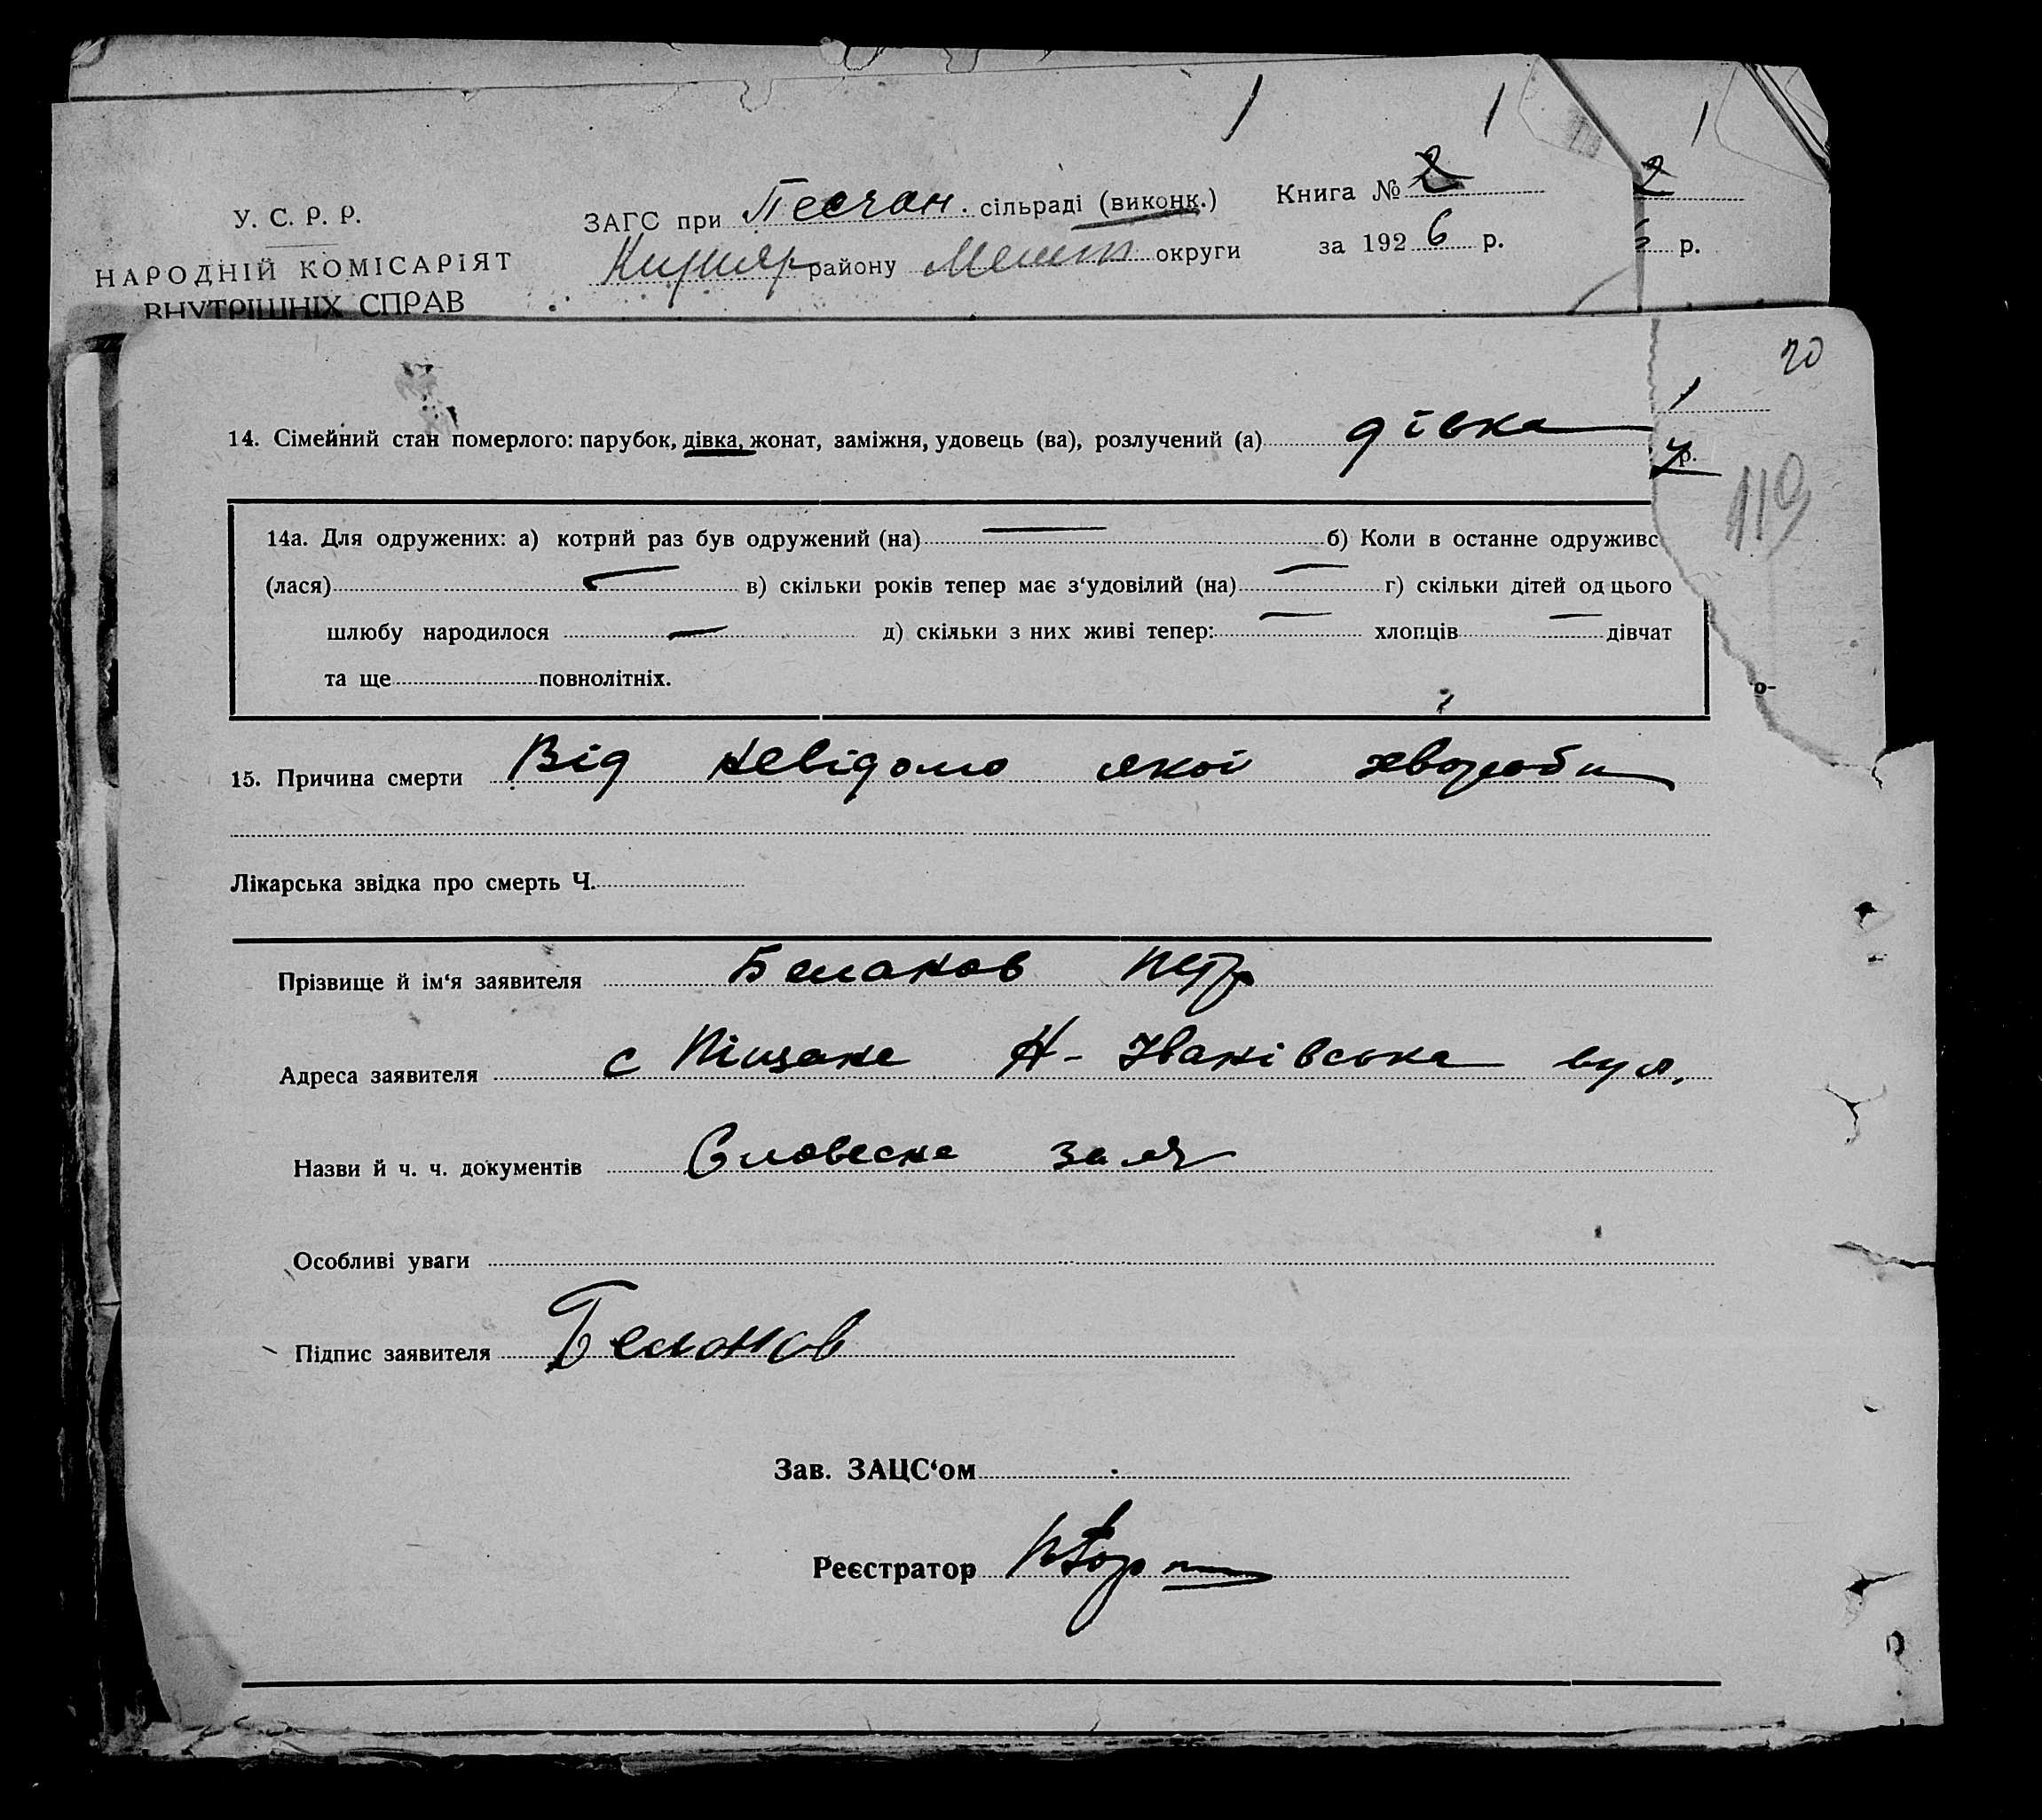 У. С. Р. Р.
НАРОДНІЙ КОМІСАРІЯТ
ВНУТРІШНІХ СПРАВ
ЗАГС при Песчан. сільраді (виконк.)
району Меліт округи
Книга № 2
за 1926 р.
2
р.
20
119
14. Сімейний стан померлого: парубок, дівка, жонат, заміжня, удовець (ва), розлучений (а) дівка
р.
14а. Для одружених: а) котрий раз був одружений (на) — б) Коли в останне одруживс
(лася) — в) скільки років тепер має з‘удовілий (на) — г) скільки дітей од цього
шлюбу народилося — д) скільки з них живі тепер: — хлопців — дівчат
та ще повнолітніх.
о-
15. Причина смерти Від невідомо якої хвороби
Лікарська звідка про смерть Ч.
Прізвище й ім‘я заявителя Петр
Адреса заявителя с Піщане Н- Іванівська вул.
Назви й ч. ч. документів Словесне заяв
Особливі уваги
Підпис заявителя
Зав. ЗАЦС‘ом
Реєстратор